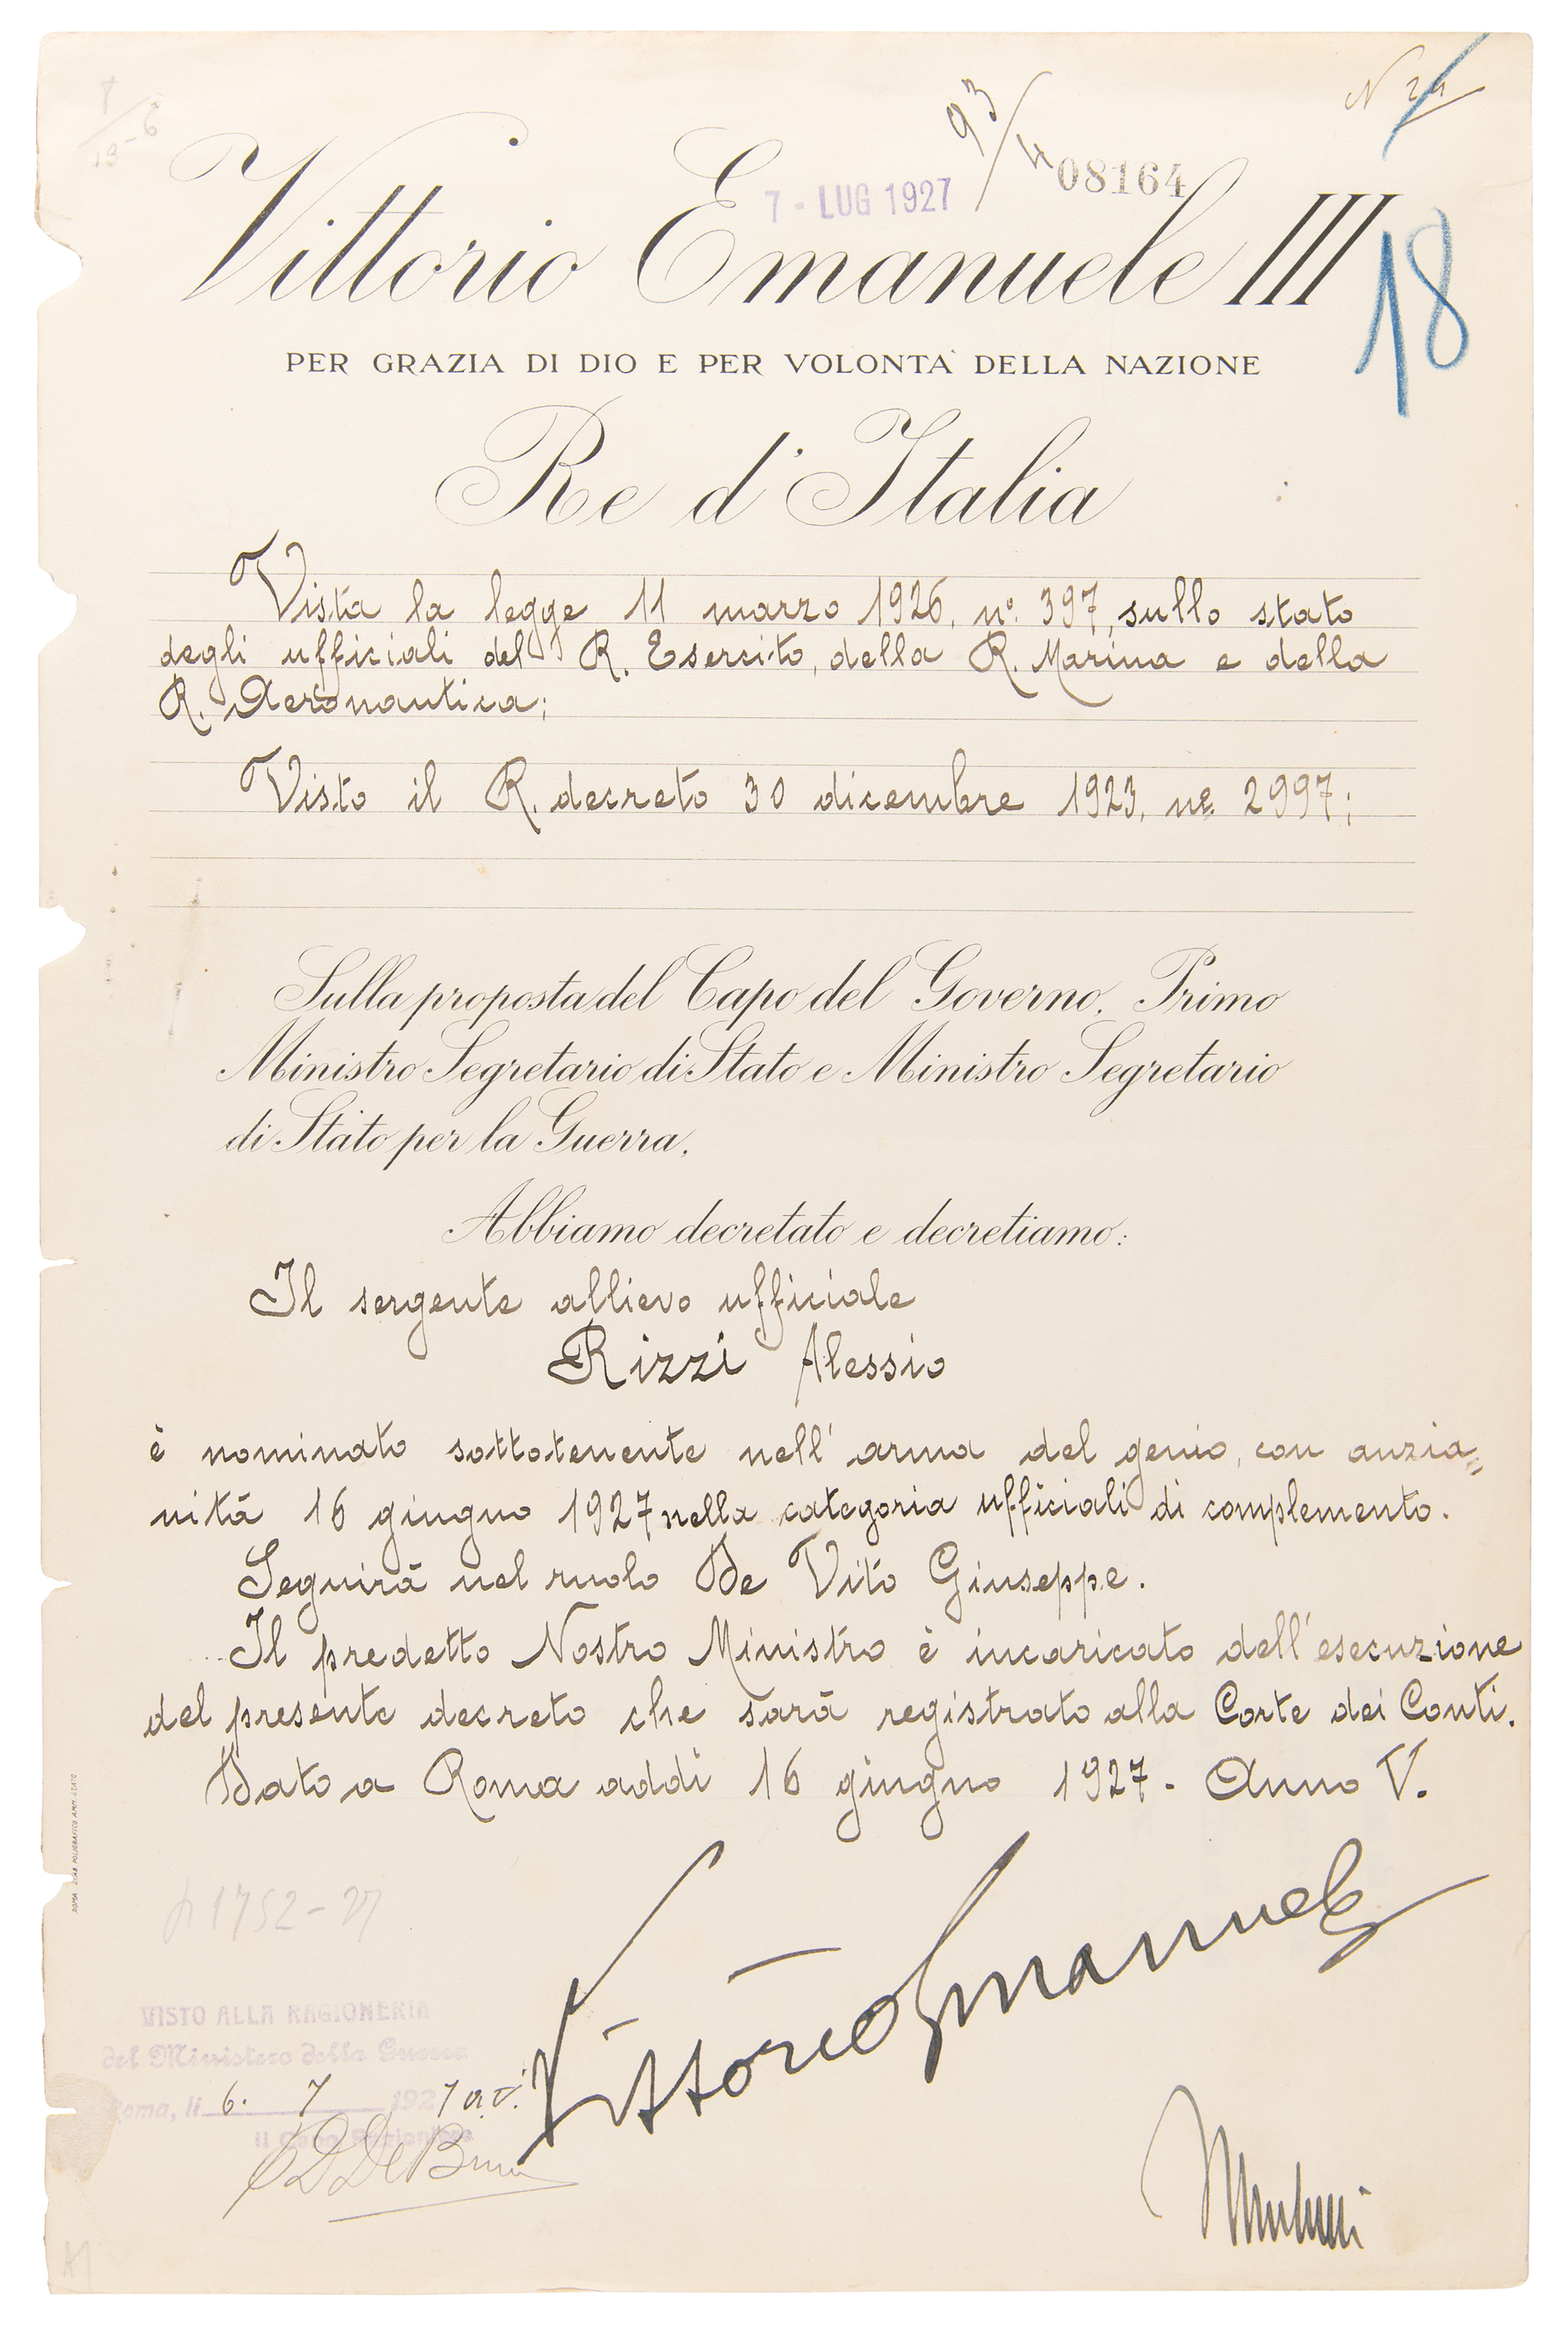 93/4
7 - LUG 1927
08164
Vittorio Emanuele III
18
PER GRAZIA DI DIO E PER VOLONTA` DELLA NAZIONE
Re d'Italia
Vista la legge 11 marzo 1926, nº. 397, sullo stato
degli ufficiali del R. Esercito, della R. Marina e della
R. Aeronautica;
Visto il R. decreto 30 dicembre 1923, nº. 2997;
Sulla proposta del Capo del Governo, Primo
Ministro Segretario di Stato e Ministro Segretario
di Stato per la Guerra.
Abbiamo decretato e decretiamo:
Il sergente allievo ufficiale
Rizzi Alessio
è nominato sottotenente nell'arma del genio, con anzia=
nità 16 giugno 1927, nella categoria ufficiali di complemento.
Seguirà nel ruolo De Vito Giuseppe.
Il predetto Nostro Ministro è incaricato dell'esecuzione
del presente decreto che sarà registrato alla Corte dei Conti.
Dato a Roma addì 16 giugno 1927 - Anno V.
1752-27
Vittorio Emanuele
VISTO ALLA RAGIONERIA
del Ministero della Guerra
Roma, li 6. 7 1927
Il Capo Ragioniere
Mussolini